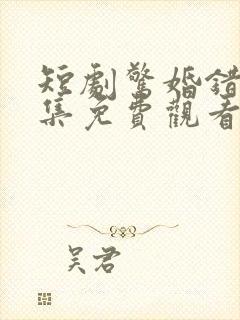 短劇驚婚錯
集免費觀看
吴君